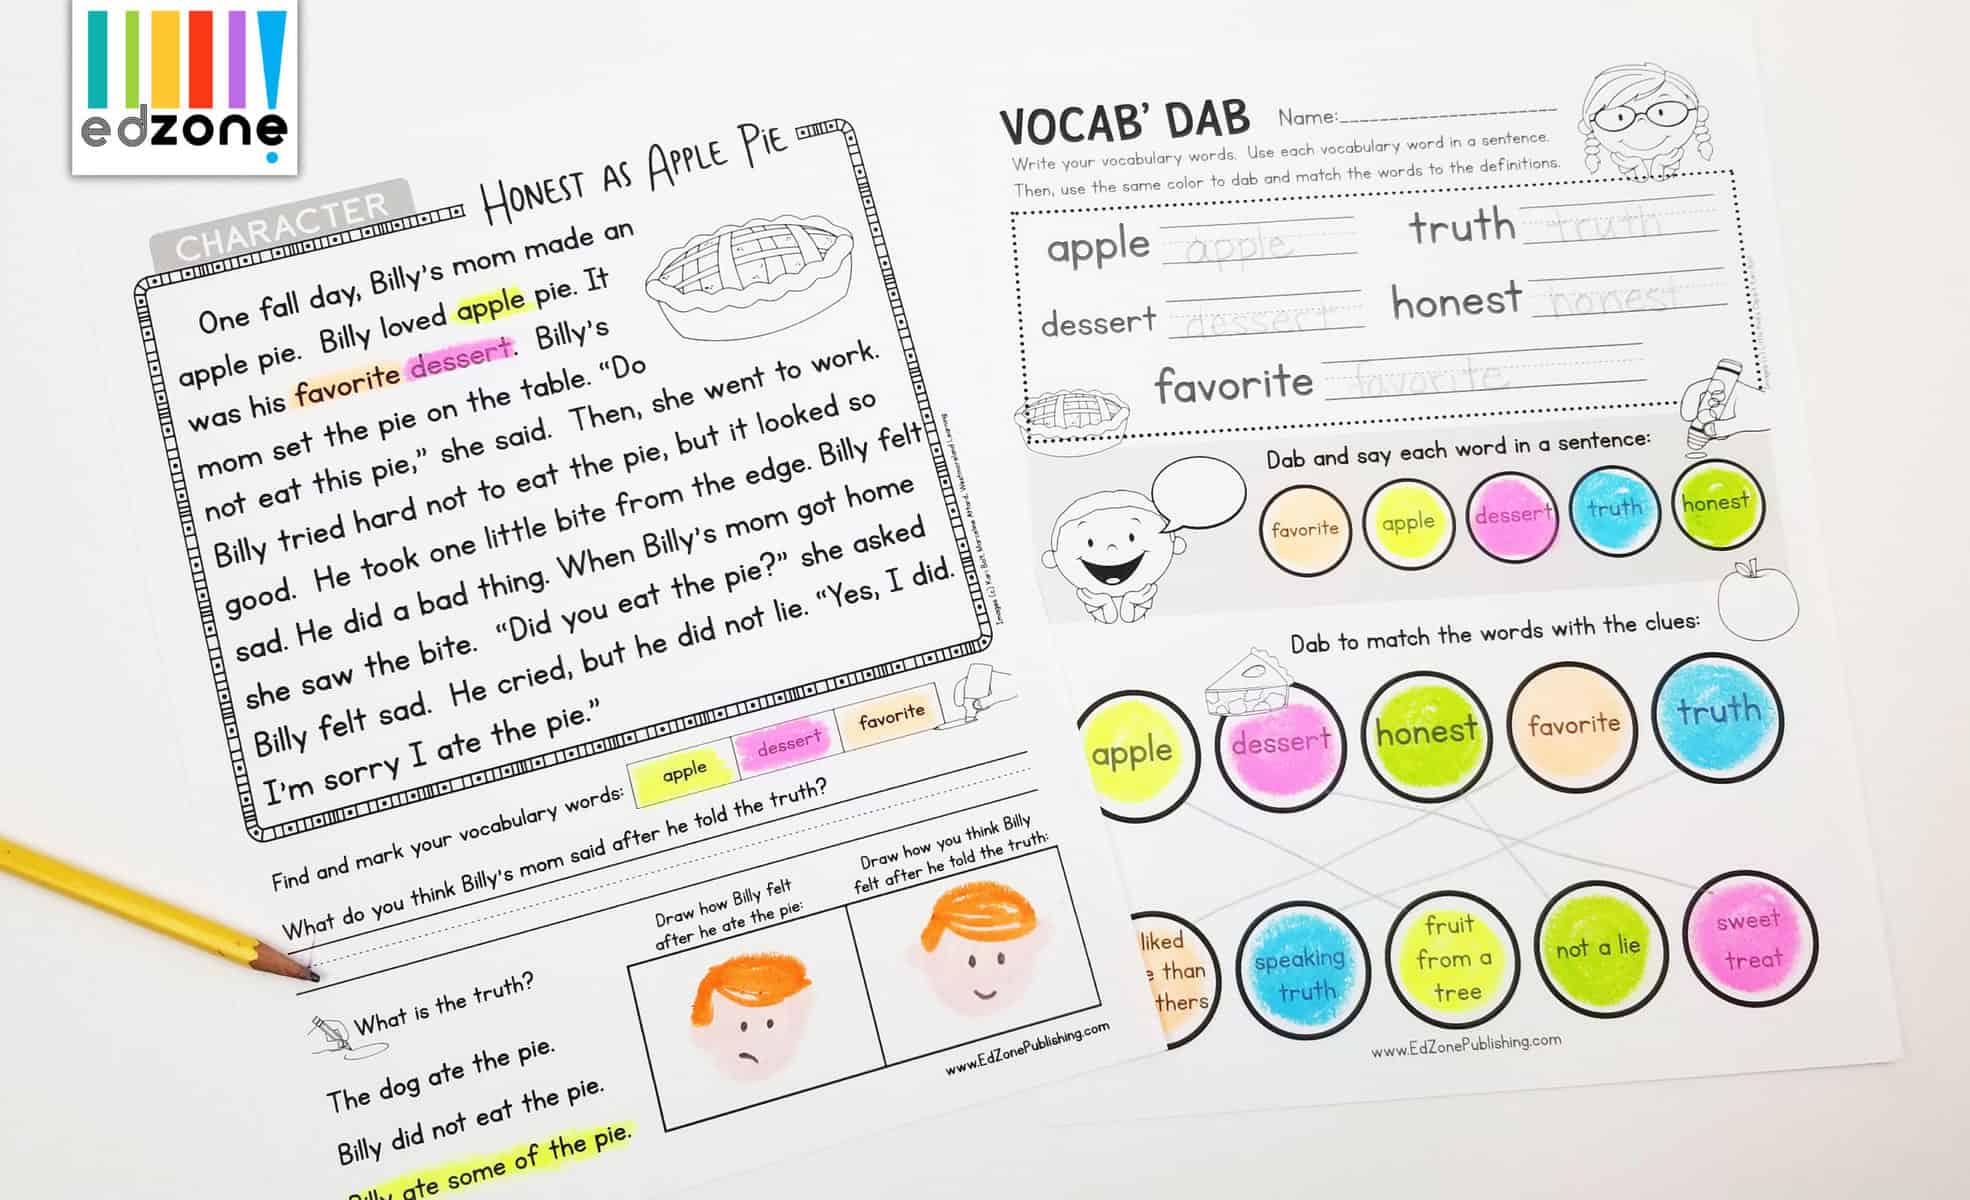 edzone
CHARACTER
HONEST AS APPLE PIE
One fall day, Billy's mom made an
apple pie. Billy loved apple pie. It
was his favorite dessert. Billy's
mom set the pie on the table. "Do
not eat this pie," she said. Then, she went to work.
Billy tried hard not to eat the pie, but it looked so
good. He took one little bite from the edge. Billy felt
sad. He did a bad thing. When Billy's mom got home
she saw the bite. "Did you eat the pie?" she asked
Billy felt sad. He cried, but he did not lie. "Yes, I did.
I'm sorry I ate the pie."
Find and mark your vocabulary words: apple dessert favorite
What do you think Billy's mom said after he told the truth?
What is the truth?
The dog ate the pie.
Billy did not eat the pie.
Billy ate some of the pie.
Draw how Billy felt
after he ate the pie:
Draw how you think Billy
felt after he told the truth:
www.EdZonePublishing.com
VOCAB' DAB Name:
Write your vocabulary words. Use each vocabulary word in a sentence.
Then, use the same color to dab and match the words to the definitions.
apple apple truth truth
dessert dessert honest honest
favorite favorite
Dab and say each word in a sentence:
favorite apple dessert truth honest
Dab to match the words with the clues:
apple dessert honest favorite truth
liked
than
thers
speaking
truth
fruit
from a
tree
not a lie
sweet
treat
www.EdZonePublishing.com